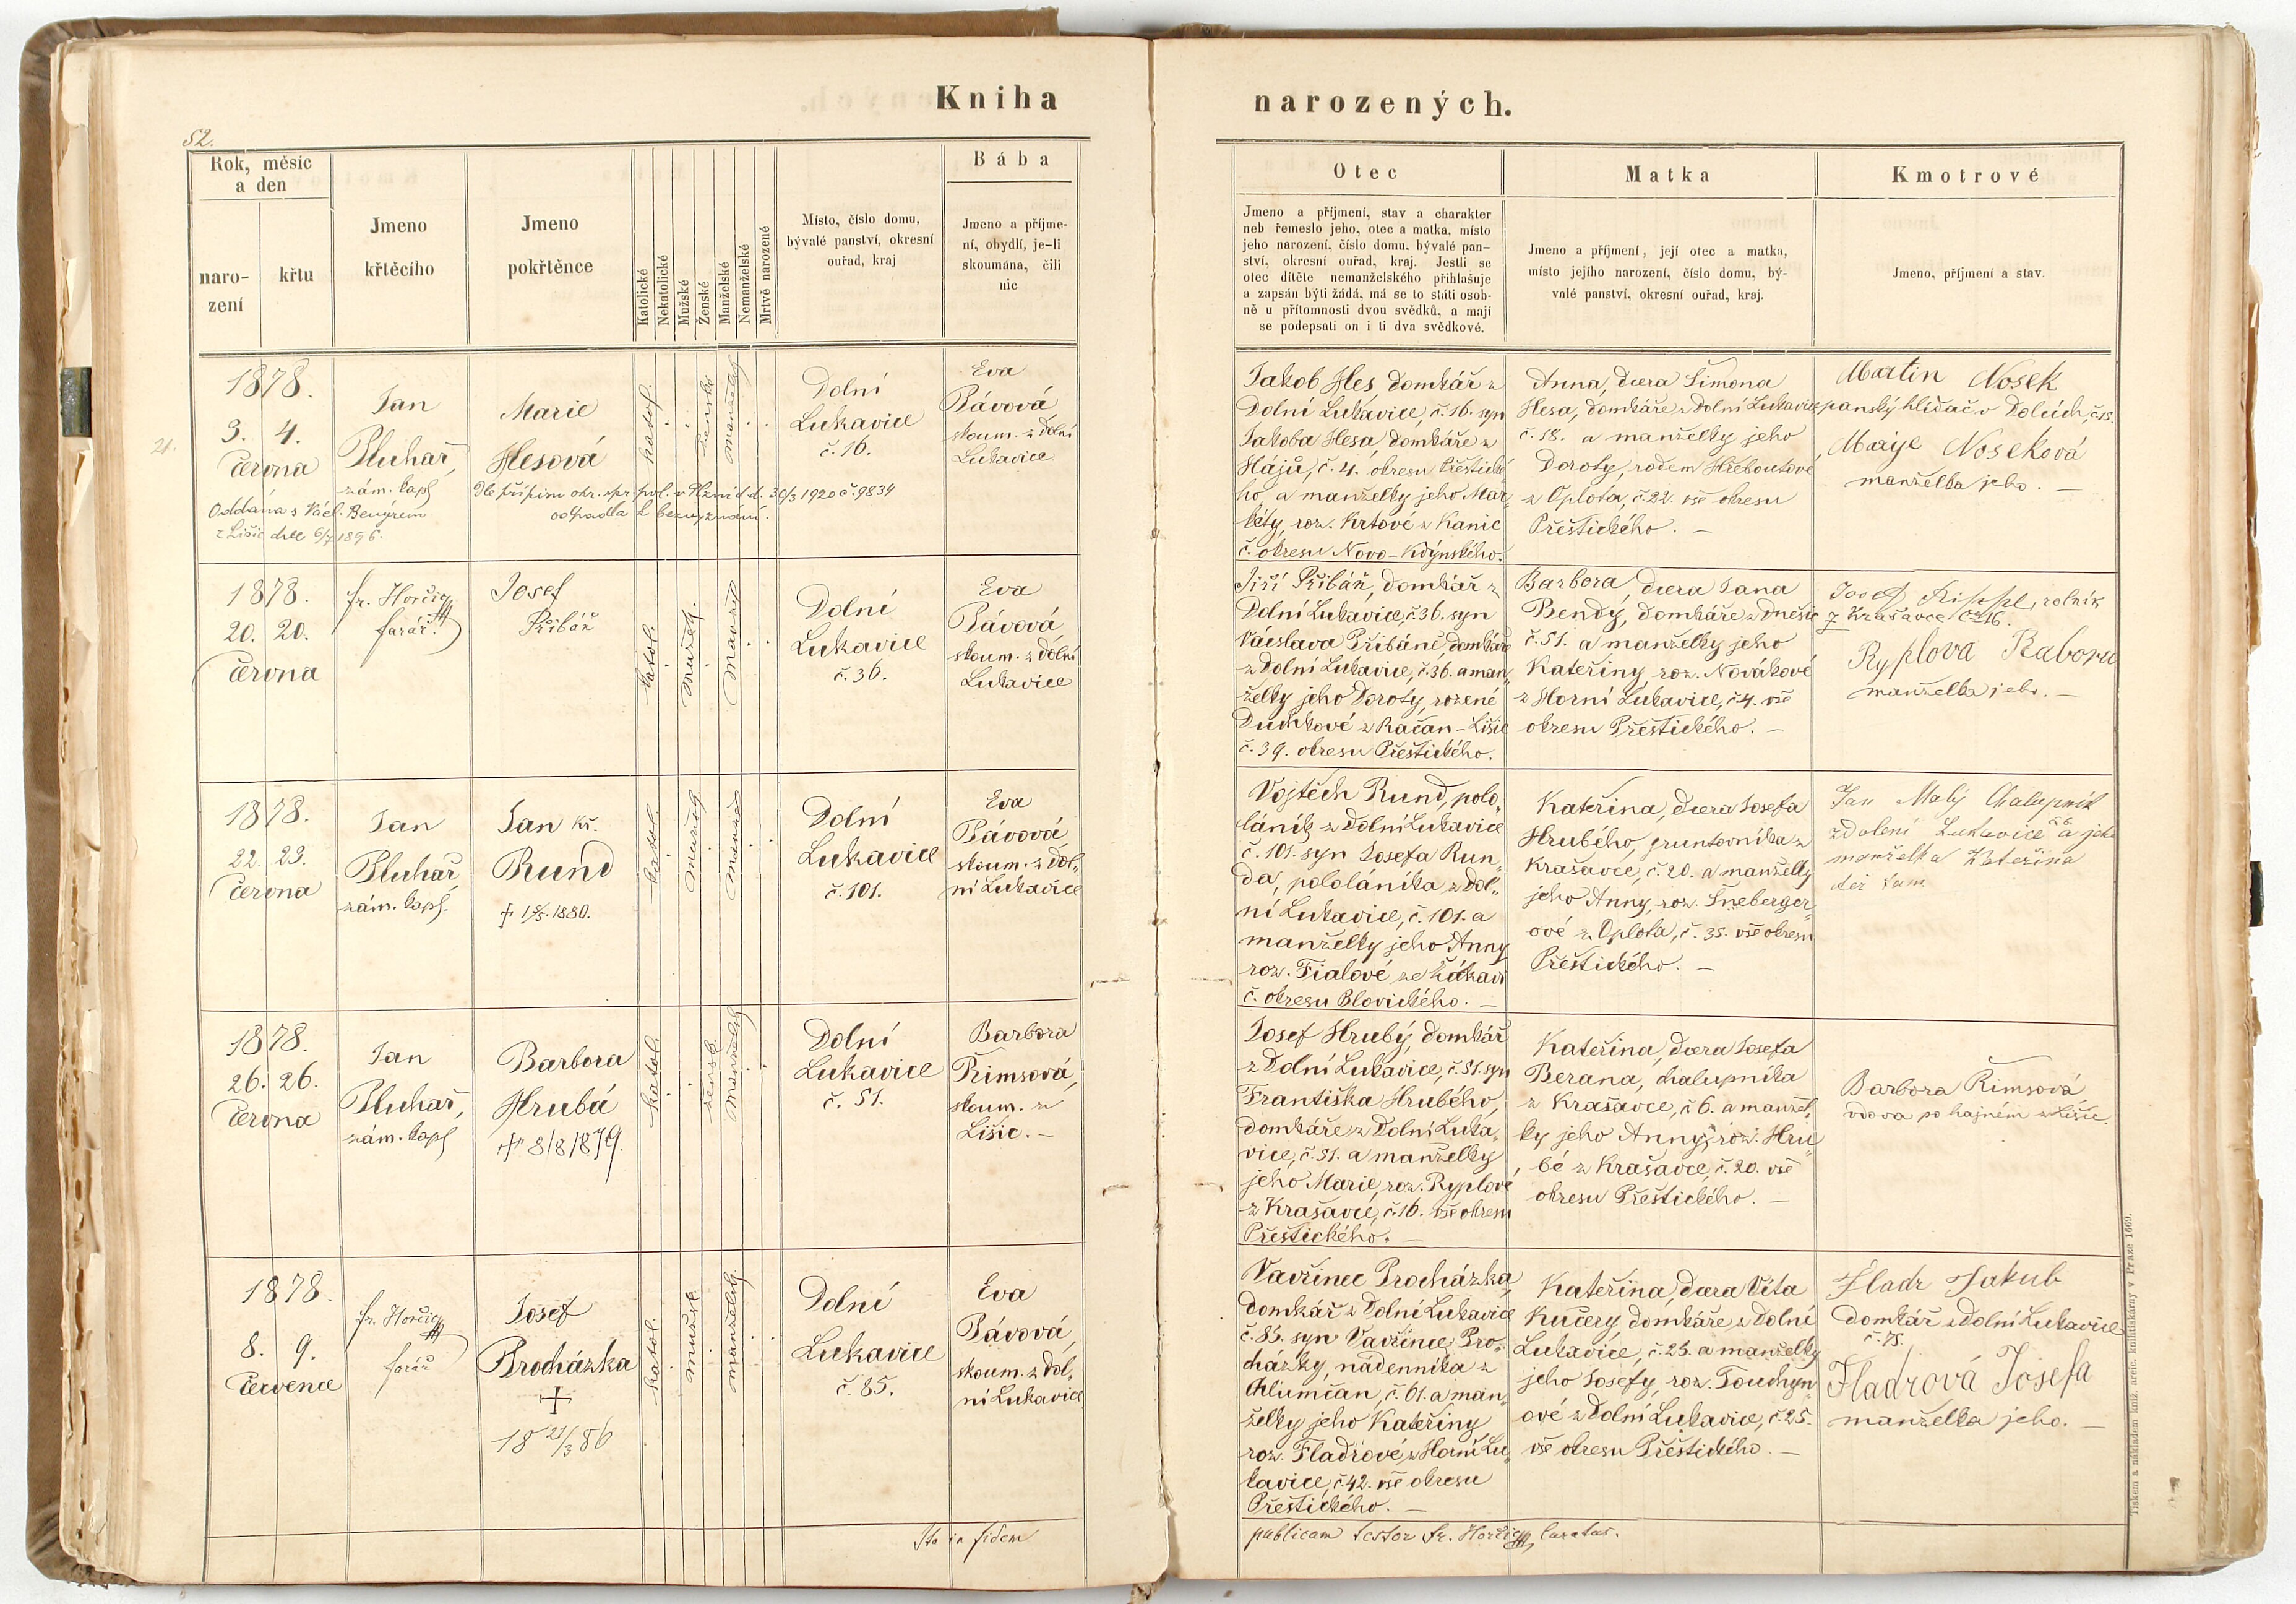 Kniha
narozených.
52.
Rok, měsíc
a den
naro-
zení
křtu
Jmeno
křtěcího
Jmeno
pokřtěnce
Katolické
Nekatolické
Mužské
Ženské
Manželské
Nemanželské
Mrtvě narozené
Místo, číslo domu,
bývalé panství, okresní
ouřad, kraj
Bába
Jmeno a příjme-
ní, obydlí, je-li
skoumána, čili
nic
Otec
Jmeno a příjmení, stav a charakter
neb řemeslo jeho, otec a matka, místo
jeho narození, číslo domu, bývalé pan-
ství, okresní ouřad, kraj. Jestli se
otec dítěte nemanželského přihlašuje
a zapsán býti žádá, má se to státi osob-
ně u přítomnosti dvou svědků, a mají
se podepsati on i ti dva svědkové.
Matka
Jmeno a příjmení, její otec a matka,
místo jejího narození, číslo domu, bý-
valé panství, okresní ouřad, kraj.
Kmotrové
Jmeno, příjmení a stav.
21.
1878.
3. 4.
června
Oddána s Václ. Bengrem
z Lišic dne 6/7 1896.
Jan
Pluhař,
zám. kapl
Marie
Hesová
Dle přípisu okr. spr. pol. v Plzni d.d. 30/3 1920 č 9834
odpadla k bezvyznání.
katol.
ženské
manželsk
Dolní
Lukavice
č. 16.
Eva
Pávová
skoum. z Dolní
Lukavice
Jakob Hes, domkář z
Dolní Lukavice, č. 16. syn
Jakoba Hesa, domkáře z
Hájů, č. 4. okresu Přeštické
ho, a manželky jeho Mar„
kéty, roz. Krtové z Kanic
č. okresu Novo-Kdýnského.
Anna, dcera Šimona
Hesa, domkáře z Dolní Lukavice
č. 18. a manželky jeho
Doroty, rodem Hřeboutové
z Oplota, č. 22. vše okresu
Přeštického. —
Martin Nosek
panský hlídač v Dolcích, č. 15.
Marye Noseková
manželka jeho. —
1878.
20. 20.
června
fr. Horčic
farář.
Josef
Přibáň
katol.
mužsk.
manžel
Dolní
Lukavice
č. 36.
Eva
Pávová
skoum. z Dolní
Lukavice
Jiří Přibáň, domkář z
Dolní Lukavice, č. 36. syn
Václava Přibáně, domkáře
z Dolní Lukavice, č. 36. a man„
želky jeho Doroty, rozené
Duchkové z Račan-Lišic
č. 39. okresu Přeštického.
Barbora, dcera Jana
Bendy, domkáře z Dnešic
č. 51. a manželky jeho
Kateřiny, roz. Novákové
z Horní Lukavice, č 4. vše
okresu Přeštického. —
Josef Rippl, rolník
z Krašavce č 16.
Ryplova Babora
manželka jeho. —
1878.
22. 23.
června
Jan
Pluhař
zám. kapl.
Jan Kř.
Rund
1880.
katol.
mužsk
manžel
Dolní
Lukavice
č. 101.
Eva
Pávová
skoum. z Dol„
ní Lukavice
Vojtěch Rund, polo„
láník z Dolní Lukavice
č. 101. syn Josefa Run„
da, pololáníka z Dol„
ní Lukavice, č. 101. a
manželky jeho Anny
roz. Fialové ze Žákavi
č. okresu Blovického. —
Kateřina, dcera Josefa
Hrubého, gruntovníka z
Krašavce, č. 20. a manželky
jeho Anny, roz. Šneberger„
ové z Oplota, č. 35. vše okresu
Přeštického. —
Jan Malý Chalupník
z Dolení Lukavice č 6. a jeho
manželka Kateřina
též tam
1878.
26. 26.
června
Jan
Pluhař,
zám. kapl
Barbora
Hrubá
† 8/8 1879.
katol.
žensk.
manželsk
Dolní
Lukavice
č. 51.
Barbora
Římsová,
skoum. z
Lišic. —
Josef Hrubý, domkář
z Dolní Lukavice, č. 51. syn
Františka Hrubého,
domkáře z Dolní Luka„
vice, č. 51. a manželky
jeho Marie, roz. Ryplové
z Krašavce, č. 16. vše okresu
Přeštického. —
Kateřina, dcera Josefa
Berana, chalupníka
z Krašavce, č 6. a manžel„
ky jeho Anny, roz. Hru„
bé z Krašavce, č. 20. vše
okresu Přeštického. —
Barbora Římsová,
vdova po hajném z Lišic.
1878.
8. 9.
července
fr. Horčic
farář
Josef
Procházka
†
18 21/3 86
katol.
mužsk
manželsk.
Dolní
Lukavice
č. 85.
Eva
Pávová,
skoum. z Dol„
ní Lukavice
Vavřinec Procházka,
domkář z Dolní Lukavice
č. 85. syn Vavřince Pro„
cházky, nádenníka z
Chlumčan, č. 61. a man„
želky jeho Kateřiny
roz. Fladrové, z Horní Lu„
kavice, č 42. vše okresu
Přeštického. —
Kateřina, dcera Víta
Kučery domkáře z Dolní
Lukavice, č. 25. a manželky
jeho Josefy, roz. Touchyn„
ové z Dolní Lukavice, č. 25.
vše okresu Přeštického. —
Fladr Jakub
domkář z Dolní Lukavice
č. 75.
Fladrová Josefa
manželka jeho. —
Ita in fidem
publicam testor fr. Horčic, Curatus.
Tiskem a nákladem kníž. arcib. knihtiskárny v Praze 1669.